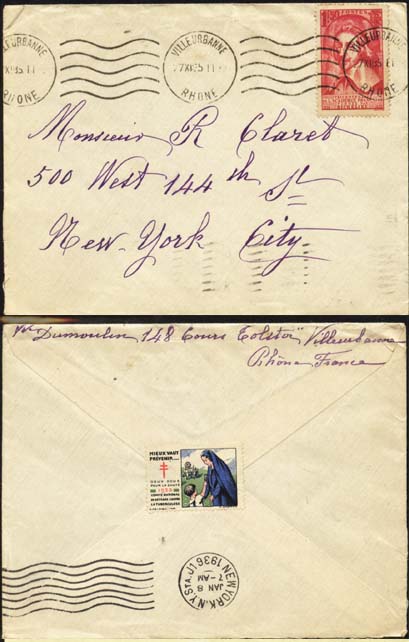 VILLEURBANNE
RHONE
VILLEURBANNE
RHONE
VILLEURBANNE
RHONE
Monsieur R Claret
500 West 144th St
New-York City
Dumoulin 148 Cours Tolstoï Villeurbanne
Rhône France
MIEUX VAUT
PRÉVENIR....
DEUX SOUS
POUR LA SANTÉ
1935
COMITÉ NATIONAL
DE DÉFENSE CONTRE
LA TUBERCULOSE
NEW YORK, N.Y. STA. J1 1936
JAN 8
7-AM